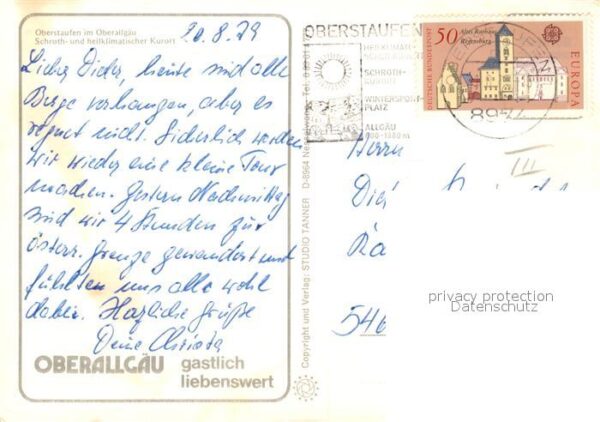 Oberstaufen im Oberallgäu
Schroth- und heilklimatischer Kurort
20.8.79
Lieber Dieter, heute sind alle
Berge verhangen, aber es
regnet nicht. Sicherlich werden
wir wieder eine kleine Tour
machen. Gestern Nachmittag
sind wir 4 Stunden zur
österr. Grenze gewandert und
fühlten uns alle wohl
dabei. Herzliche Grüße
Deine Christa
OBERALLGÄU gastlich
liebenswert
Copyright und Verlag: STUDIO TANNER
OBERSTAUFEN
HEILKLIMAT.
SCHROTH-
KURORT
WINTERSPORT-
PLATZ
ALLGÄU
50
Altes Rathaus
Regensburg
DEUTSCHE BUNDESPOST
EUROPA
CEPT
III
Herrn
Die
Ka
546
privacy protection
Datenschutz